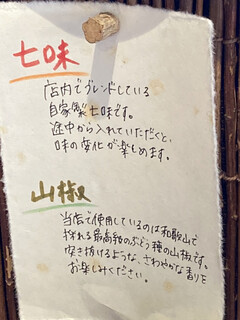 七味
店内でブレンドしている
自家製七味です。
途中から入れていただくと、
味の変化が楽しめます。
山椒
当店で使用しているのは和歌山で
採れる最高級のぶどう種の山椒です。
突き抜けるような、さわやかな香りを
お楽しみください。